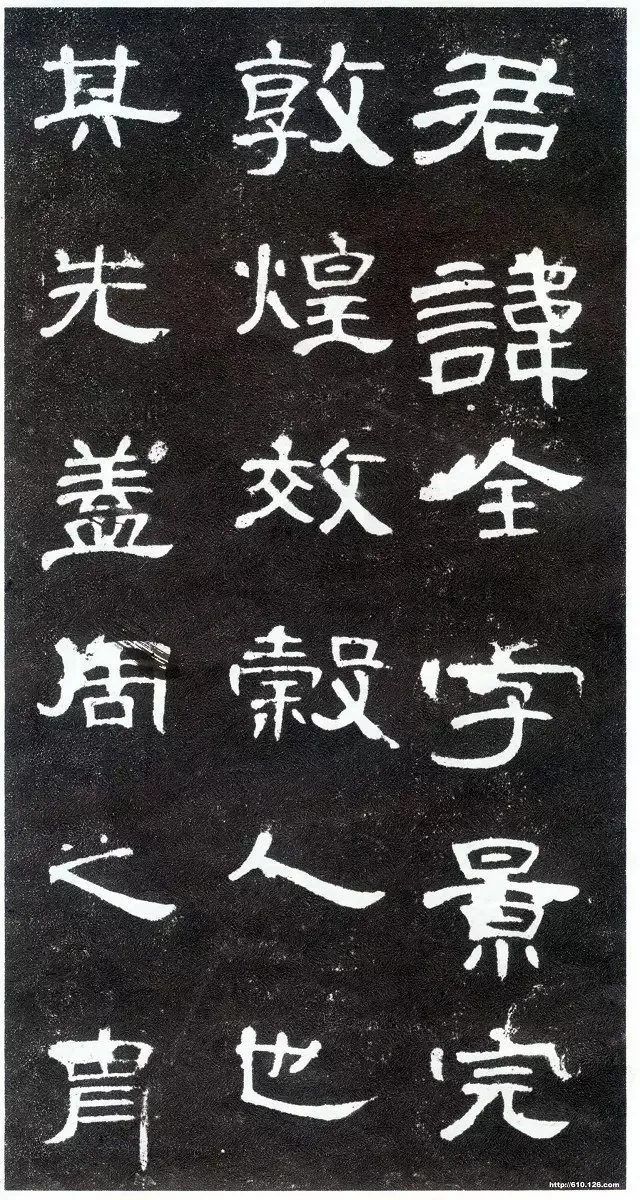 君諱全字景完
敦煌效穀人也
其先蓋周之胄
http://610.126.com